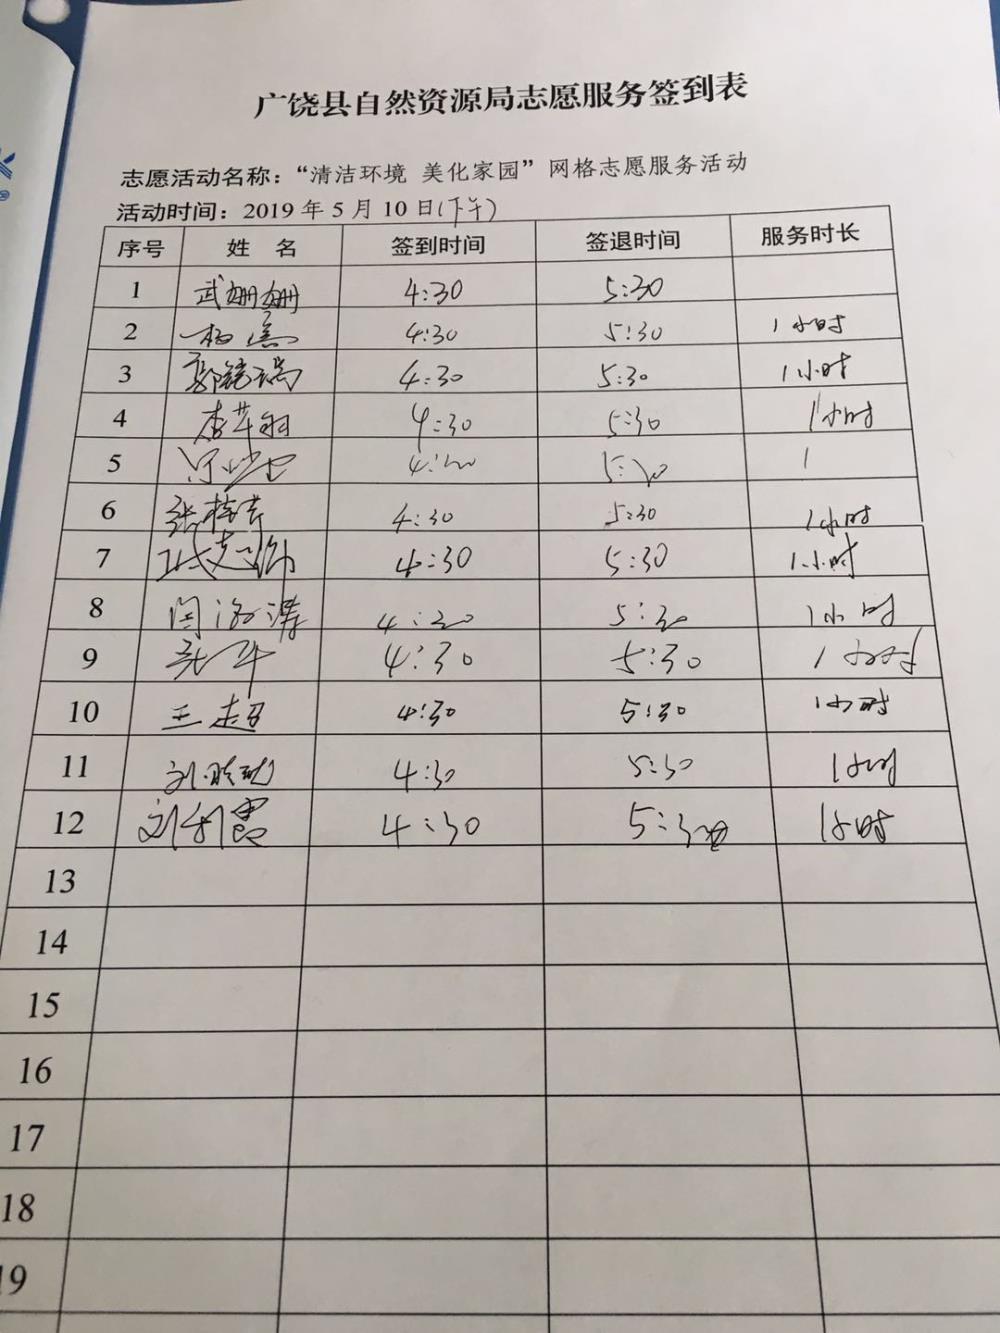 广饶县自然资源局志愿服务签到表
志愿活动名称：“清洁环境 美化家园”网格志愿服务活动
活动时间：2019年5月10日(下午)
序号 姓 名 签到时间 签退时间 服务时长
1 武姗姗 4:30 5:30
2 4:30 5:30 1小时
3 4:30 5:30 1小时
4 4:30 5:30 1小时
5 4:30 5:30 1
6 4:30 5:30 1小时
7 4:30 5:30 1小时
8 4:30 5:30 1小时
9 4:30 5:30 1小时
10 王超 4:30 5:30 1小时
11 刘 4:30 5:30 1小时
12 刘利霞 4:30 5:30 1小时
13
14
15
16
17
18
19